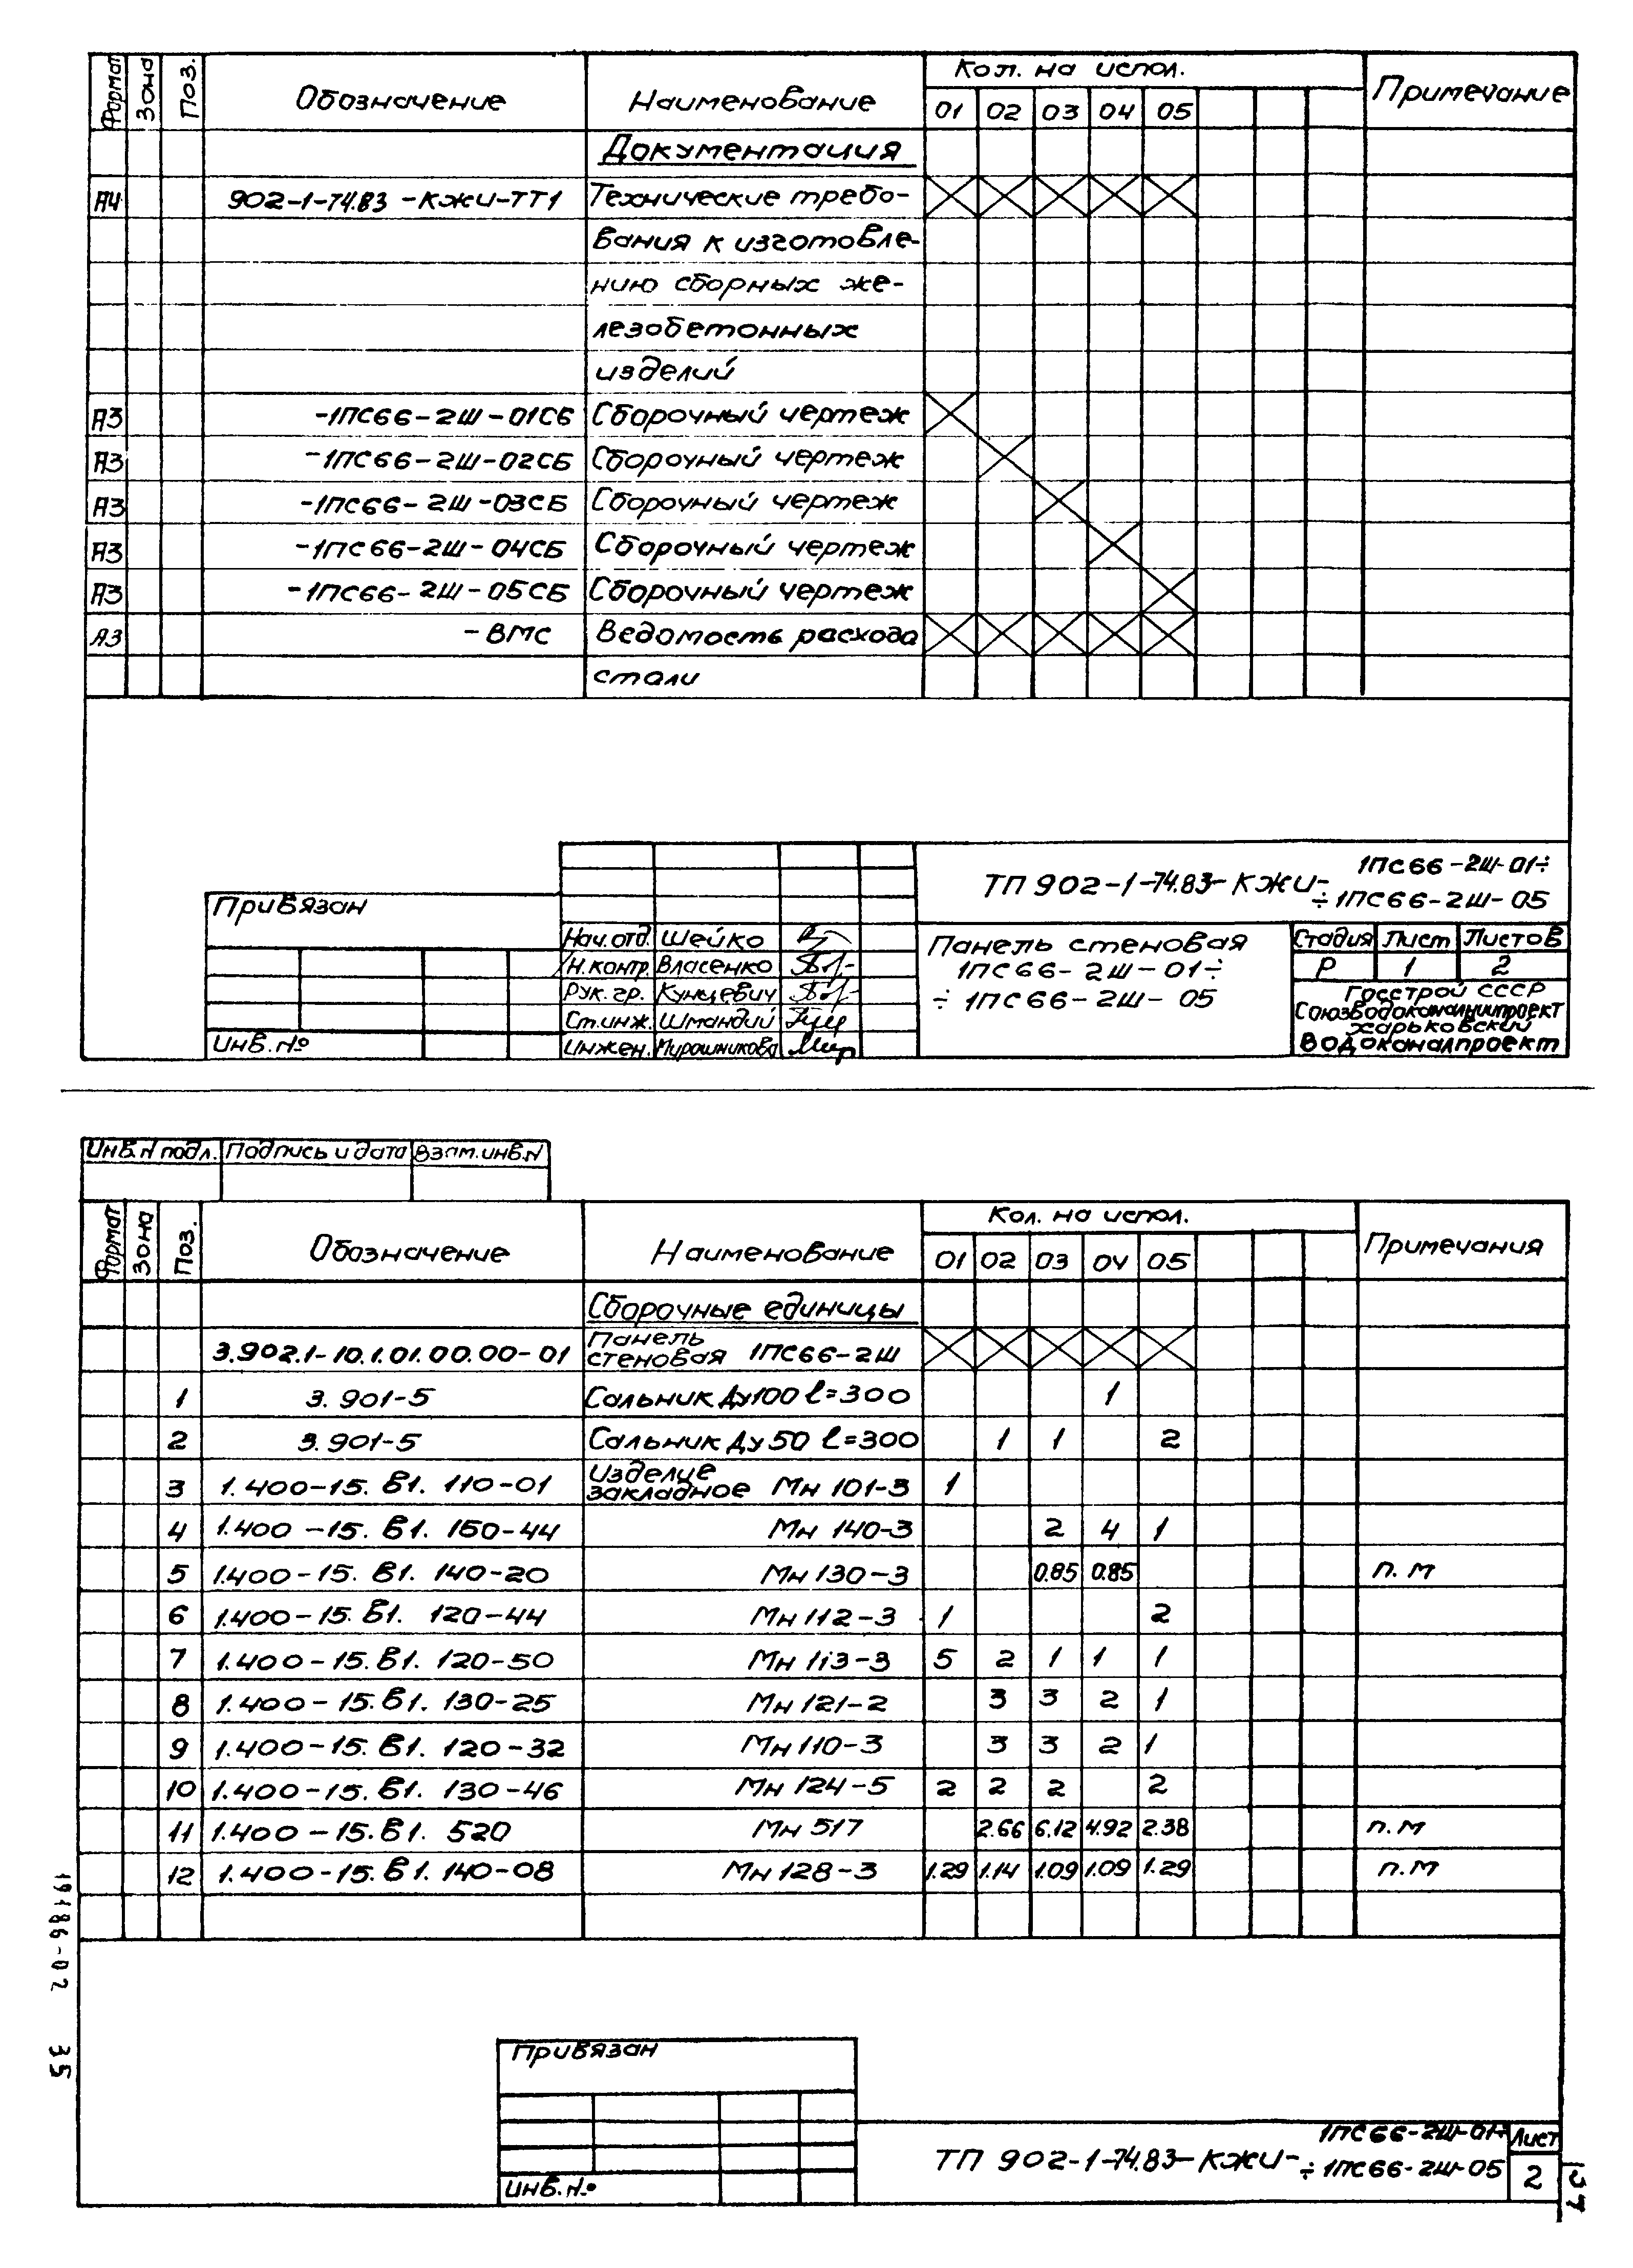 Формат Зона Поз. Обозначение Наименование Кол. на испол. Примечание
01 02 03 04 05
Документация
А4 902-1-74.83-КЖИ-ТТ1 Технические требо-
вания к изготовле-
нию сборных же-
лезобетонных
изделий
А3 -1ПС66-2Ш-01СБ Сборочный чертеж
А3 -1ПС66-2Ш-02СБ Сборочный чертеж
А3 -1ПС66-2Ш-03СБ Сборочный чертеж
А3 -1ПС66-2Ш-04СБ Сборочный чертеж
А3 -1ПС66-2Ш-05СБ Сборочный чертеж
А3 -ВМС Ведомость расхода
стали
Привязан
Инв.№
Нач.отд. Шейко
Н.контр. Власенко
Рук.гр. Кунцевич
Ст.инж. Шмандий
Инжен. Мирошникова
ТП 902-1-74.83-КЖИ- 1ПС66-2Ш-01÷
÷1ПС66-2Ш-05
Панель стеновая
1ПС66-2Ш-01÷
÷1ПС66-2Ш-05
Стадия Лист Листов
Р 1 2
Госстрой СССР
Союзводоканалниипроект
Харьковский
Водоканалпроект
Инв.N подл. Подпись и дата Взам.инв.N
Формат Зона Поз. Обозначение Наименование Кол. на испол. Примечания
01 02 03 04 05
Сборочные единицы
3.902.1-10.1.01.00.00-01 Панель стеновая 1ПС66-2Ш
1 3.901-5 Сальник Ду100 l=300 1
2 3.901-5 Сальник Ду50 l=300 1 1 2
3 1.400-15.В1.110-01 Изделие закладное Мн 101-3 1
4 1.400-15.В1.150-44 Мн 140-3 2 4 1
5 1.400-15.В1.140-20 Мн 130-3 0.85 0.85 п.м
6 1.400-15.В1.120-44 Мн 112-3 1 2
7 1.400-15.В1.120-50 Мн 113-3 5 2 1 1 1
8 1.400-15.В1.130-25 Мн 121-2 3 3 2 1
9 1.400-15.В1.120-32 Мн 110-3 3 3 2 1
10 1.400-15.В1.130-46 Мн 124-5 2 2 2 2
11 1.400-15.В1.520 Мн 517 2.66 6.12 4.92 2.38 п.м
12 1.400-15.В1.140-08 Мн 128-3 1.29 1.14 1.09 1.09 1.29 п.м
19186-02 35
Привязан
Инв.№
ТП 902-1-74.83-КЖИ- 1ПС66-2Ш-01÷
÷1ПС66-2Ш-05
Лист
2